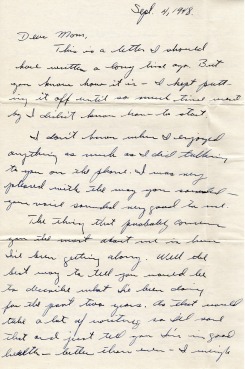 Sept 4, 1948.
Dear Mom,
This is a letter I should
have written a long time ago. But
you know how it is - I kept putt-
ing it off until so much time went
by I didn't know how to start.
I don't know when I enjoyed
anything as much as I did talking
to you on the phone. I was very
pleased with the way you sounded -
your voice sounded very good to me.
The thing that probably concerns
you the most about me is how
I've been getting along. Well the
best way to tell you would be
to describe what I've been doing
for the past two years. As that would
take a lot of writing so I'll just
that and just tell you I'm in good
health - better than ever - I weigh